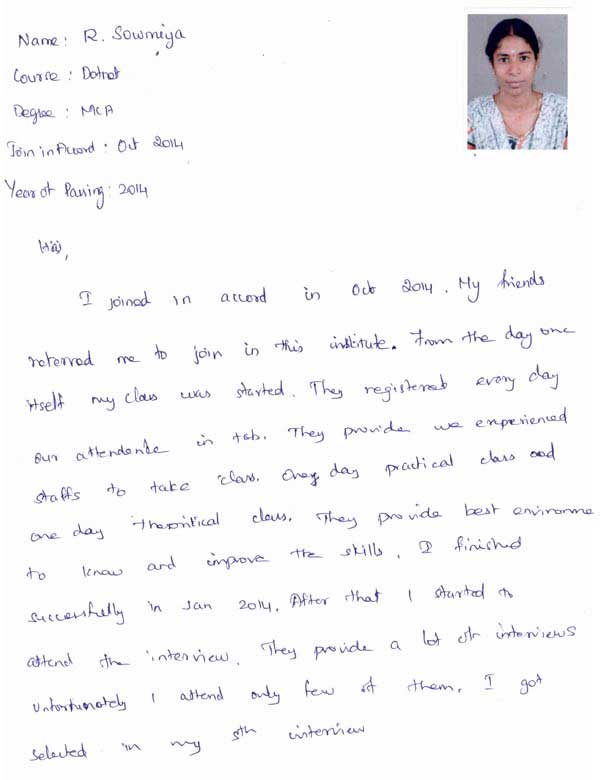 Name: R. Sowmiya
Course: Dotnet
Degree: MCA
Join in Accord: Oct 2014
Year of Passing: 2014
Hai,
I joined in accord in Oct 2014. My friends
referred me to join in this institute. From the day one
itself my class was started. They registered every day
our attendence in tab. They provide we experienced
staffs to take class. One day practical class and
one day theoritical class. They provide best environme
to know and improve the skills. I finished
successfully in Jan 2014. After that I started to
attend the interview. They provide a lot of interviews
unfortunately I attend only few of them. I got
selected in my 5th interview